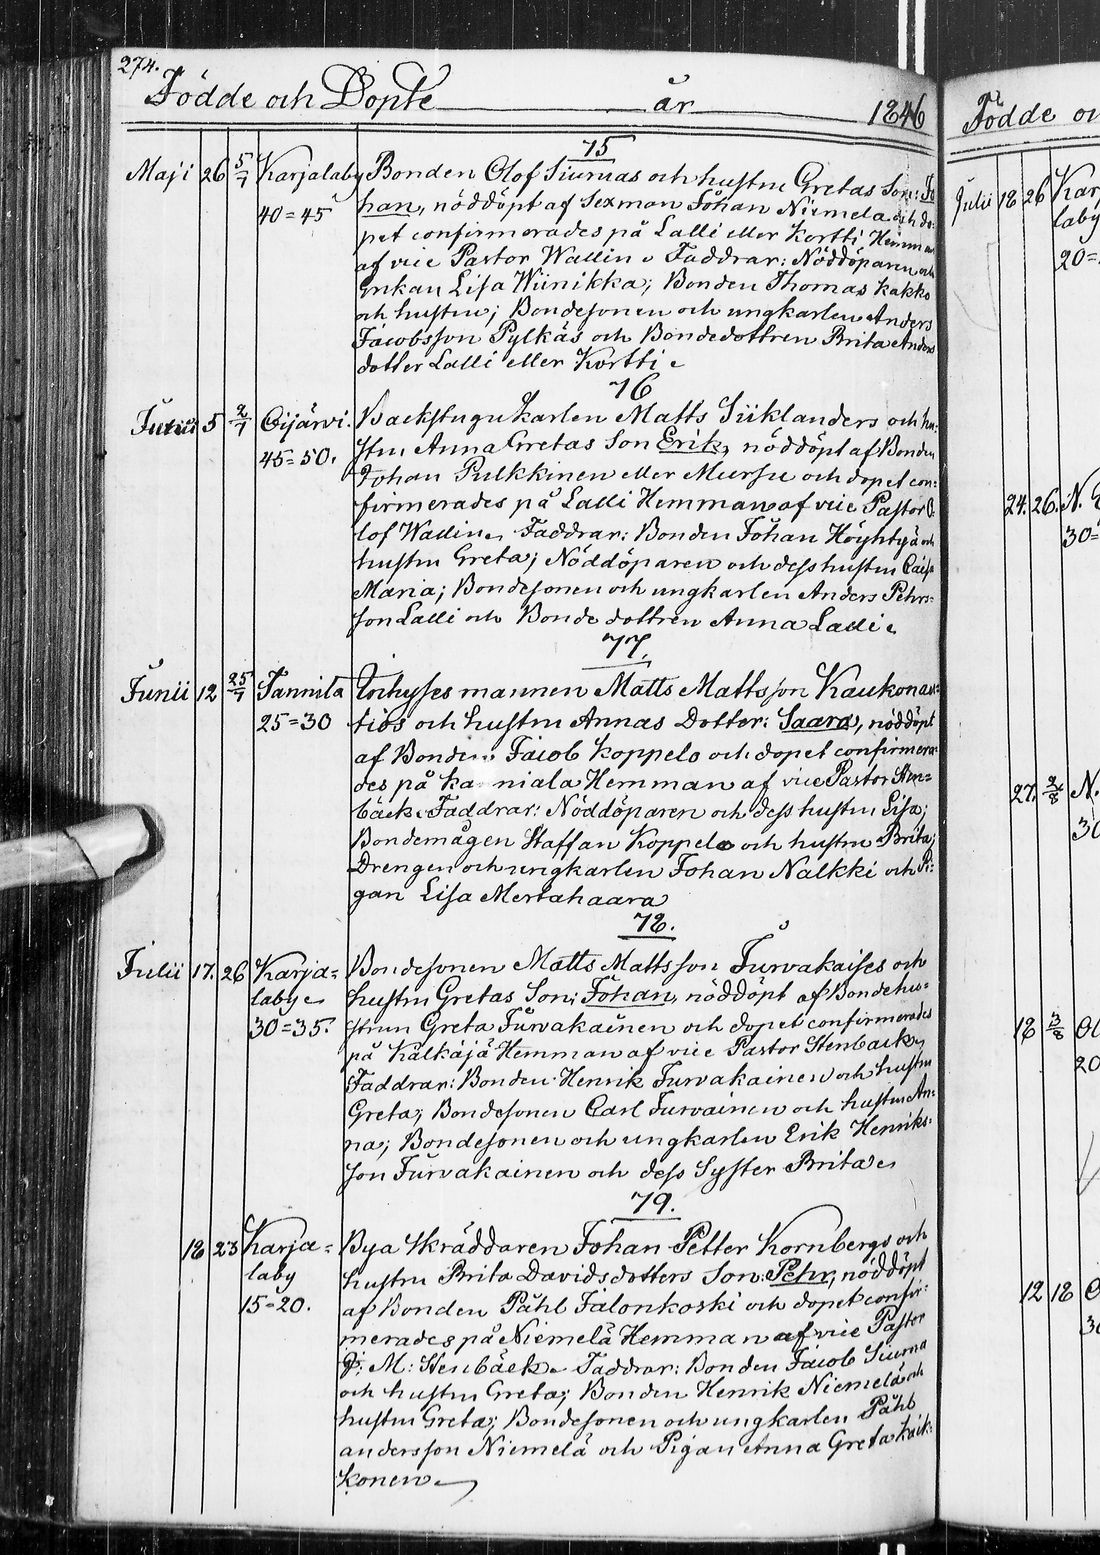 274.
Födde och Döpte år 1846
75
Maji 26 5/7 Karjalaby Bonden Olof Siurnas och hustru Gretas Son: Jo
40=45 han, nöddöpt af Sexman Johan Niemela och do-
pet confirmerades på Lalli eller Kortti Hemman
af vice Pastor Wallin. Faddrar: Nöddöparen och
Enkan Lisa Wiinikka; Bonden Thomas Kakko
och hustru; Bondesonen och ungkarlen Anders
Jacobsson Pylkäs och Bondedottren Brita Anders
dotter Lalli eller Kortti.
76
Junii 5 2/7 Oijärvi. Backstugukarlen Matts Siiklanders och hu-
45=50. stru Anna Gretas Son Erik, nöddöpt af Bonden
Johan Pulkkinen eller Mursu och dopet con-
firmerades på Lalli Hemman af vice Pastor O-
lof Wallin. Faddrar: Bonden Johan Höyhtyä och
hustru Greta; Nöddöparen och dess hustru Caisa
Maria; Bondesonen och ungkarlen Anders Pehrs-
son Lalli och Bondedottren Anna Lalli.
77.
Junii 12 25/7 Tannila Inhyses mannen Matts Mattsson Kaukonan-
25=30 tios och hustru Annas Dotter: Saara, nöddöpt
af Bonden Jacob Koppelo och dopet confirmera-
des på Ka niala Hemman af vice Pastor Sten-
bäck. Faddrar: Nöddöparen och dess hustru Lisa;
Bondemågen Staffan Koppelo och hustru Brita;
Drengen och ungkarlen Johan Nalkki och Pi-
gan Lisa Mertahaara
78.
Julii 17. 26 Karja- Bondesonen Matts Mattsson Turvakaises och
laby hustru Gretas Son: Johan, nöddöpt af Bondehu-
30=35. strun Greta Turvakainen och dopet confirmerades
på Kälkäjä Hemman af vice Pastor Stenback,
Faddrar: Bonden Henrik Turvakainen och hustru
Greta; Bondesonen Carl Turvainen och hustru An-
na; Bondesonen och ungkarlen Erik Henriks-
son Turvakainen och dess Syster Brita.
79.
18 23 Karja- Bya Skräddaren Johan Petter Kornbergs och
laby hustru Brita Davidsdotters Son: Pehr, nöddöpt
15=20. af Bonden Påhl Jalonkoski och dopet confir-
merades på Niemelä Hemman af vice Pastor
J. M: Stenbäck. Faddrar: Bonden Jacob Siurna
och hustru Greta; Bonden Henrik Niemelä och
hustru Greta; Bondesonen och ungkarlen Påhl
andersson Niemelä och Pigan Anna Greta Kaik-
konen
Födde
Julii 18 26 Kar
laby
20=
24. 26. N.
30=
27. 2/8 N.
30
18 3/8
20
12 18
30